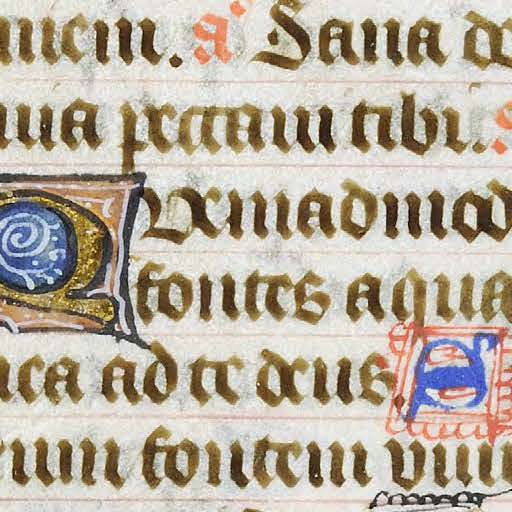 a Sana do
uia peccaui tibi.
Quemadmod
fontes aqua
ea ad te deus. S
eum fontem viuu